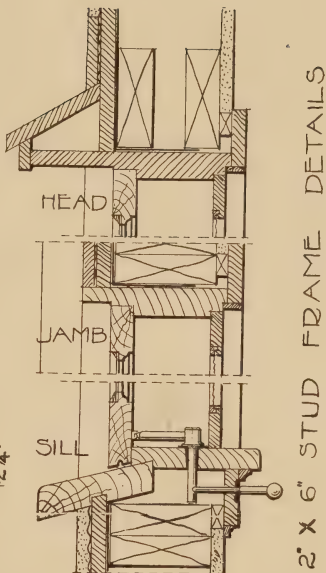 HEAD
JAMB
SILL
2" X 6" STUD FRAME DETAILS